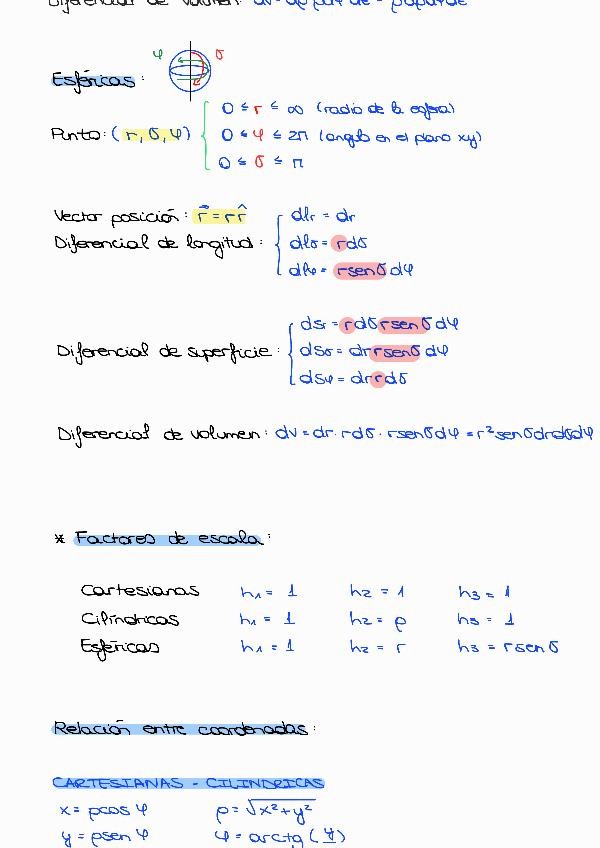 Diferencial de volumen:
φ σ
Esféricas:
0 ≤ r ≤ ∞ (radio de la esfera)
Punto: (r, σ, φ) 0 ≤ φ ≤ 2π (angulo en el plano xy)
0 ≤ σ ≤ π
Vector posición: r̄ = r r̂ dlr = dr
Diferencial de longitud: dlσ = rdσ
dlφ = rsenσdφ
dsr = rdσrsenσdφ
Diferencial de superficie: dsσ = drrsenσdφ
dsφ = drrdσ
Diferencial de volumen: dv = dr · rdσ · rsenσdφ = r²senσdrdσdφ
* Factores de escala:
Cartesianas h₁ = 1 h₂ = 1 h₃ = 1
Cilíndricas h₁ = 1 h₂ = ρ h₃ = 1
Esféricas h₁ = 1 h₂ = r h₃ = rsenσ
Relación entre coordenadas:
CARTESIANAS - CILINDRICAS
x = ρcos φ ρ = √x²+y²
y = ρsen φ φ = arctg (y